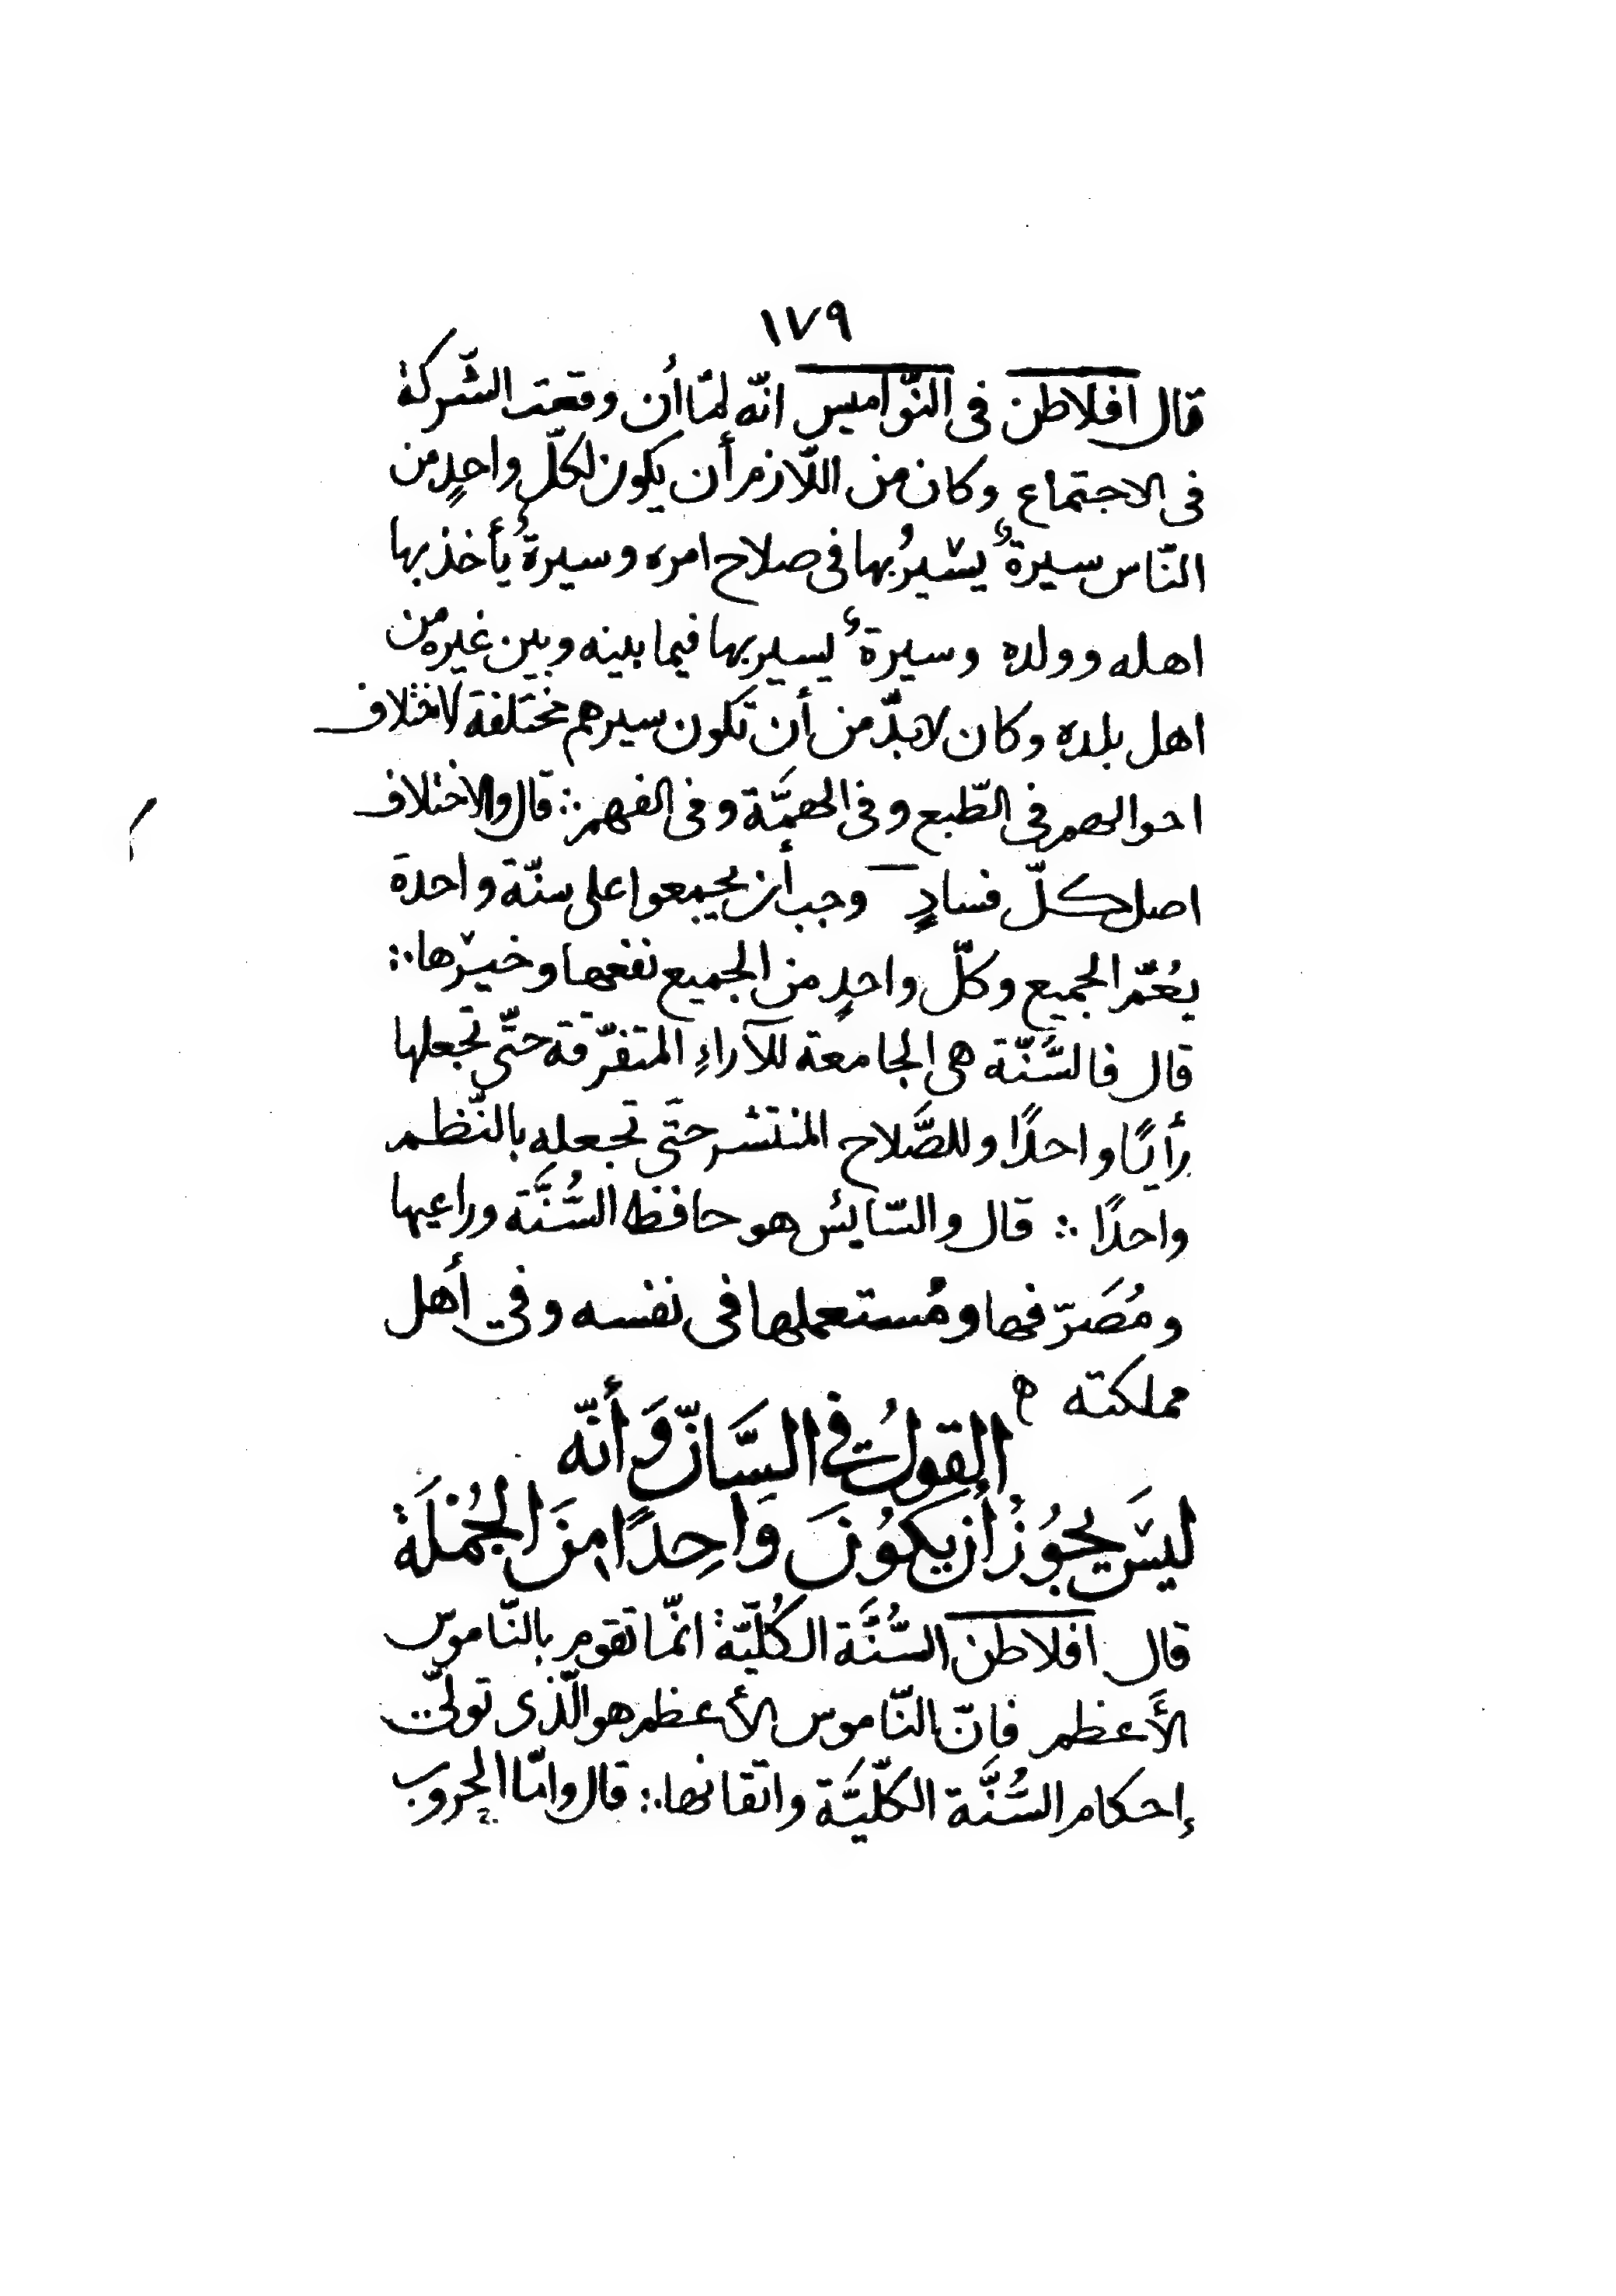 ١٧٩
قال افلاطن فى النّواميس انّه لمّا أن وقعت الشّركة
فى الاجتماع وكان من اللّازم أن يكون لكلّ واحدٍ من
النّاس سيرةٌ يسْيرُ بها فى صلاح امره وسيرةٌ يأخذ بها
اهله وولده وسيرةٌ يسير بها فيما بينه وبين غيره من
اهل بلده وكان لا بدّ من أن تكون سيرهم مختلفة لاختلاف
احوالهم فى الطّبع وفى الهمَّة وفى الفهم ∴ قال والاختلاف
اصل كلّ فسادٍ وجب أن يجمعوا على سنّة واحدة
يعُمّ الجميع وكلّ واحدٍ من الجميع نفعها وخيْرها ∴
قال فالسُّنّة هى الجامعة للآراءِ المتفرّقة حتّى تجعلها
رأيًا واحدًا وللصَّلاح المنتشر حتّى تجعله بالنّظم
واحدًا ∴ قال والسّايس هو حافظ السُّنَّة وراعيها
ومُصَرّفها ومُستعملها فى نفسه وفي أهل
مملكته ه
القولُ في السَّانّ وَأنّه
ليسَ يجُوزُ أن يكوُنَ وَاحِدًا منَ الجُمْلَة
قال افلاطن السُّنَّة الكُلّيّة انّما تقوم بالنّاموس
الأعظم فانّ النّاموس الأعظم هو الّذى تولّى
إحكام السُّنَّة الكلّيَّة واتقانها ∴ قال وامّا الحروب